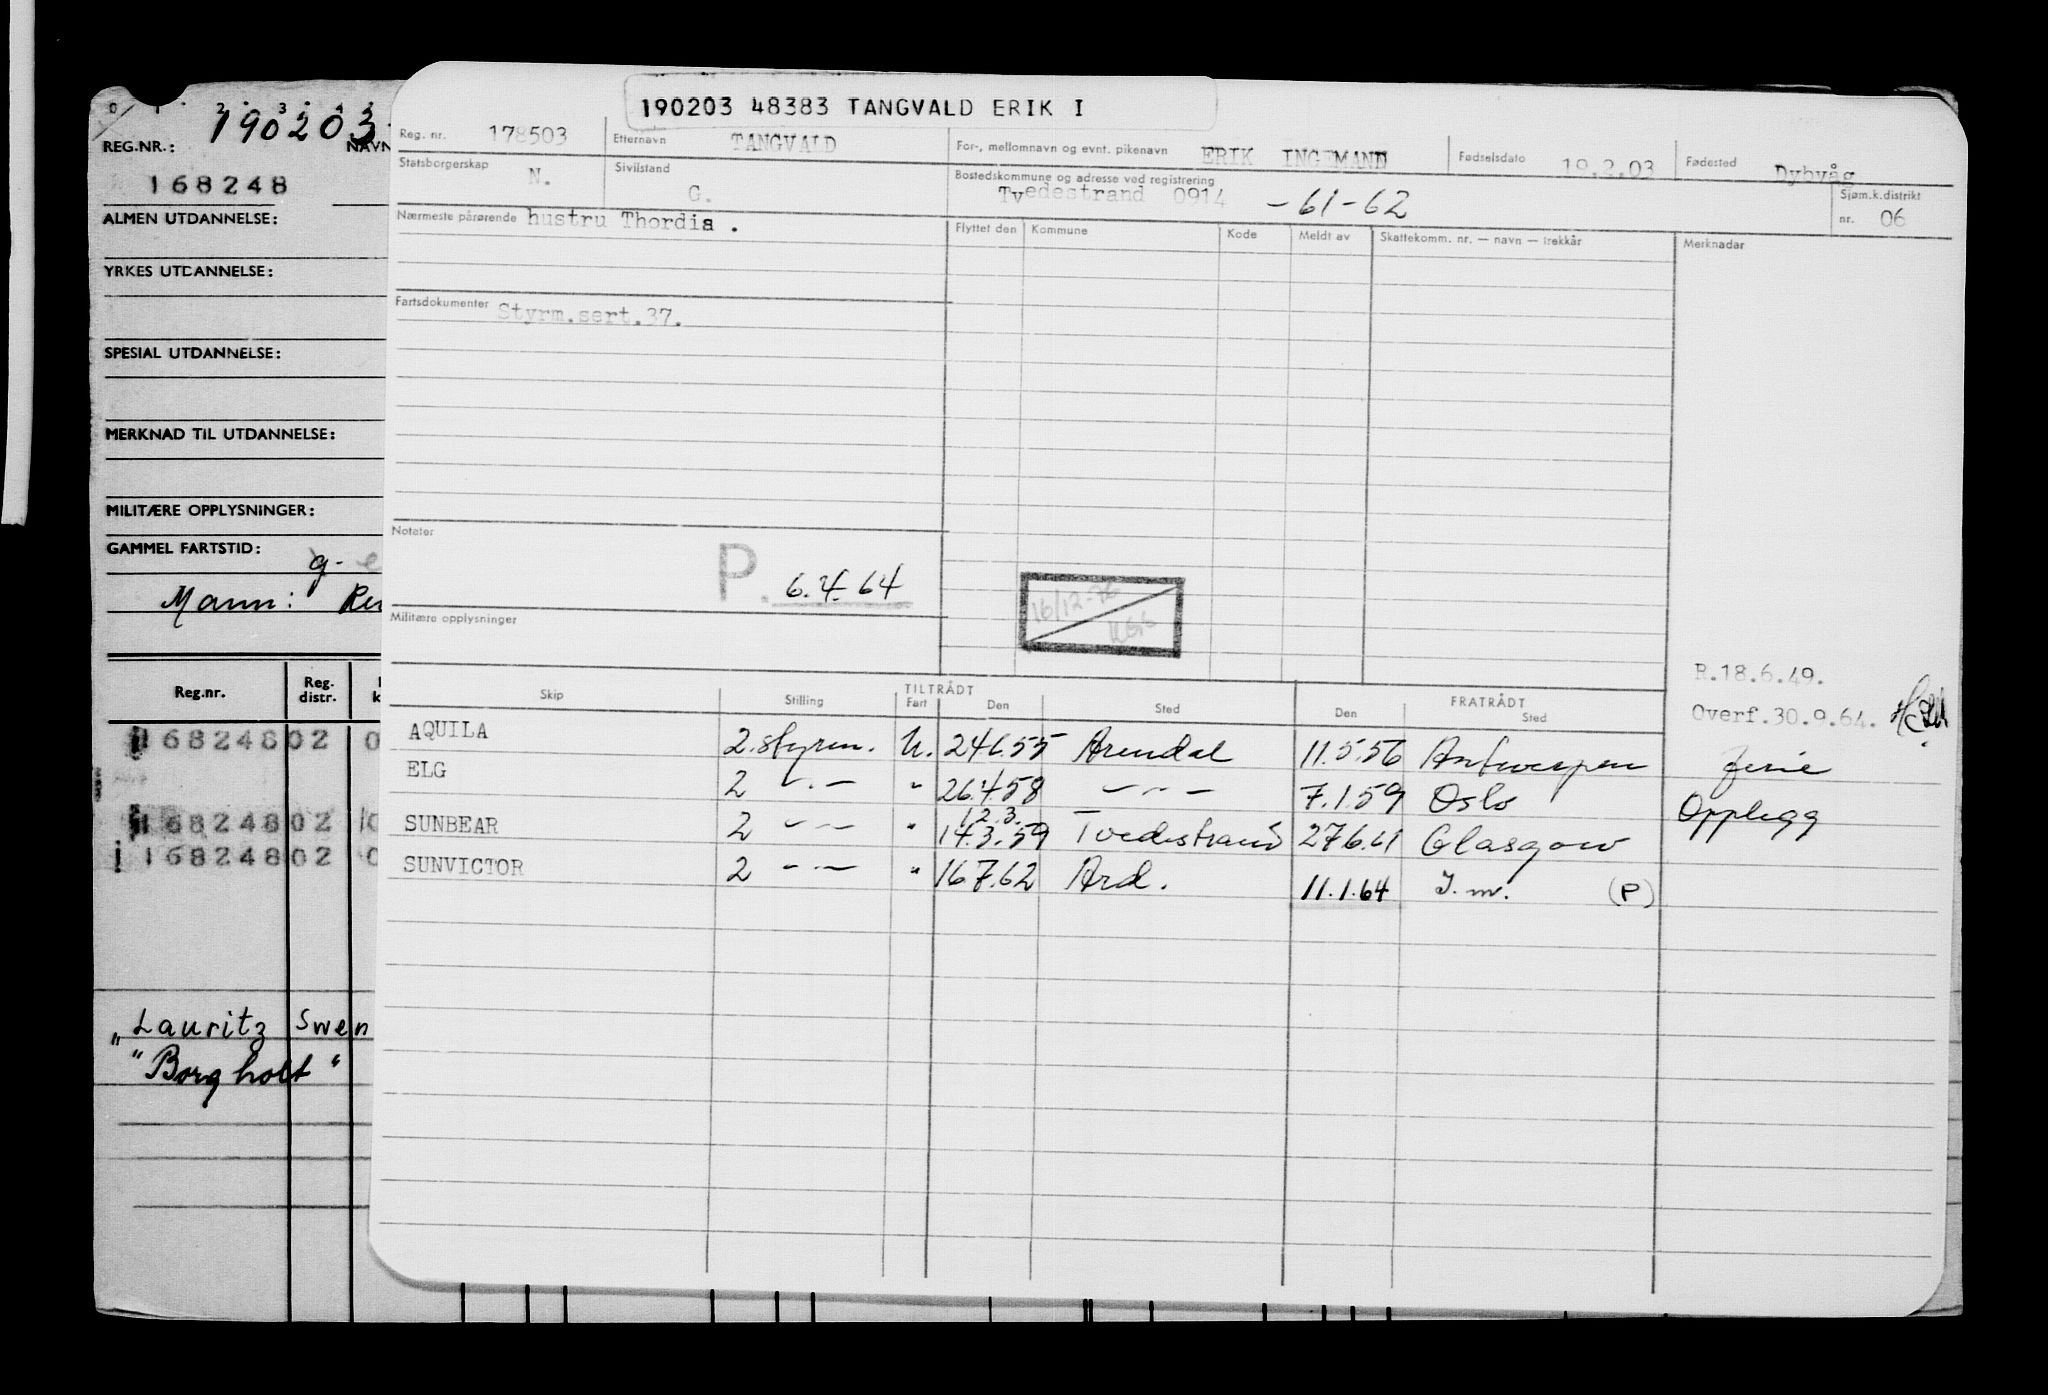 190203 48383 TANGVALD ERIK I
Reg. nr. 178503 Etternavn TANGVALD For-, mellomnavn og evnt. pikenavn ERIK INGEMAND Fødselsdato 19.2.03 Fødested Dybvåg
Statsborgerskap N. Sivilstand G. Bostedskommune og adresse ved registrering Tvedestrand 0914 -61-62 Sjøm.k.distrikt nr. 06
Nærmeste pårørende hustru Thordis . Flyttet den Kommune Kode Meldt av Skattekomm. nr. — navn — trekkår Merknadar
Fartsdokumenter Styrm.sert.37.
Notater
P. 6.4.64
16/12-76
Militære opplysninger
R.18.6.49.
Overf.30.9.64.
TILTRÅDT FRATRÅDT
Skip Stilling Fart Den Sted Den Sted
AQUILA 2.styrm. U. 24.6.55 Arendal 11.5.56 Antwerpen ferie
ELG 2 -"- " 26.4.58 -"- 7.1.59 Oslo Opplegg
12.3.
SUNBEAR 2 -"- " 14.3.59 Tvedestrand 27.6.61 Glasgow
SUNVICTOR 2 -"- " 16.7.62 Ard. 11.1.64 I.m. (P)
0 1 2 3 4
190203
REG.NR.: NAVN
168248
ALMEN UTDANNELSE:
YRKES UTDANNELSE:
SPESIAL UTDANNELSE:
MERKNAD TIL UTDANNELSE:
MILITÆRE OPPLYSNINGER:
GAMMEL FARTSTID:
g-
Mann:
Reg.nr. Reg. distr.
16824802 0
16824802
16824802 0
"Lauritz Swen
"Borgholt"